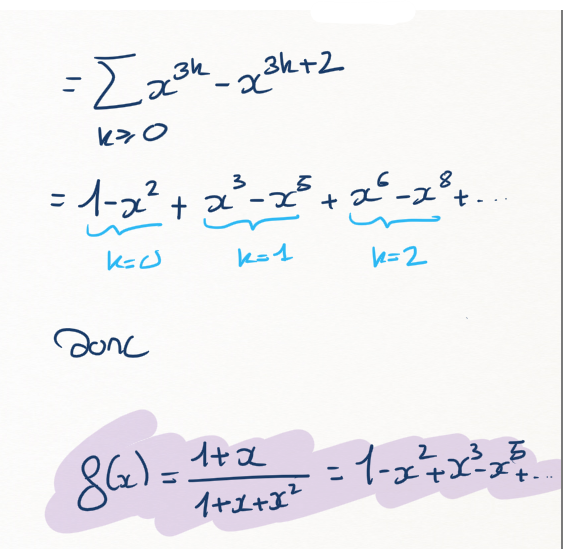 = ∑ x^{3k} - x^{3k+2}
k⩾0
= 1-x² + x³-x⁵ + x⁶-x⁸+...
k=0 k=1 k=2
Donc
g(x) = (1+x)/(1+x+x²) = 1-x²+x³-x⁵+...